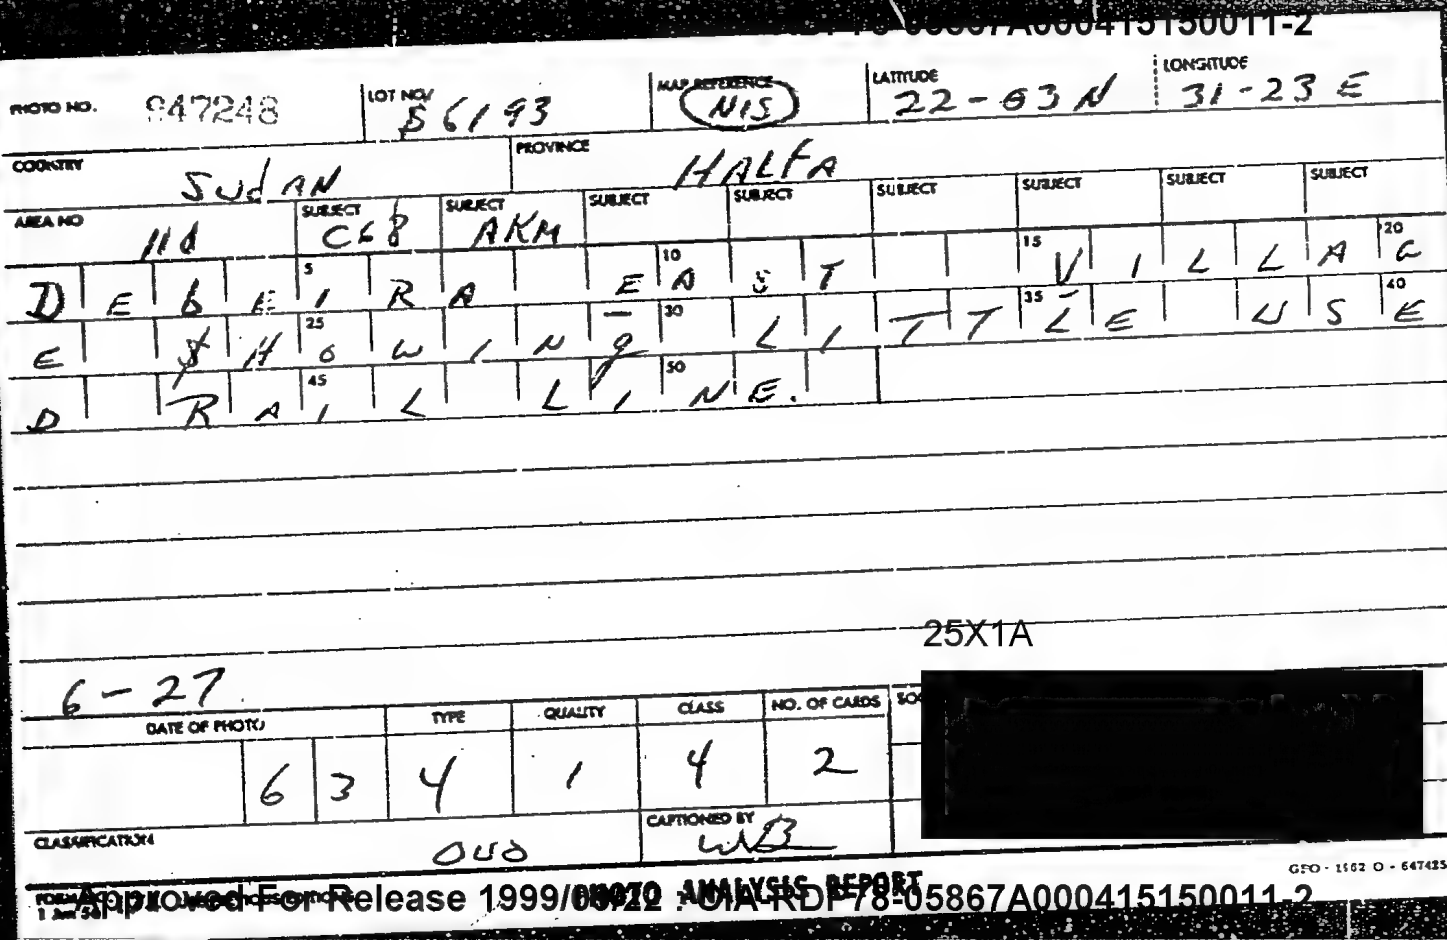 RDP78-05867A000415150011-2
PHOTO NO. 947248 LOT NO. 56193 MAP REFERENCE NIS LATITUDE 22-03 N LONGITUDE 31-23 E
COUNTRY SudAN PROVINCE HALFA
AREA NO 118 SUBJECT C68 SUBJECT AKM SUBJECT SUBJECT SUBJECT SUBJECT SUBJECT SUBJECT
DEBEIRA EAST VILLAG
5 10 15 20
E SHOWINg LITTLE USE
25 30 35 40
D RAIL LINE.
45 50
25X1A
6-27
DATE OF PHOTO TYPE QUALITY CLASS NO. OF CARDS
63 4 1 4 2
CLASSIFICATION OUO CAPTIONED BY WB
GPO - 1962 O - 647425
PHOTO ANALYSIS REPORT
Approved For Release 1999/09/22 : CIA-RDP78-05867A000415150011-2